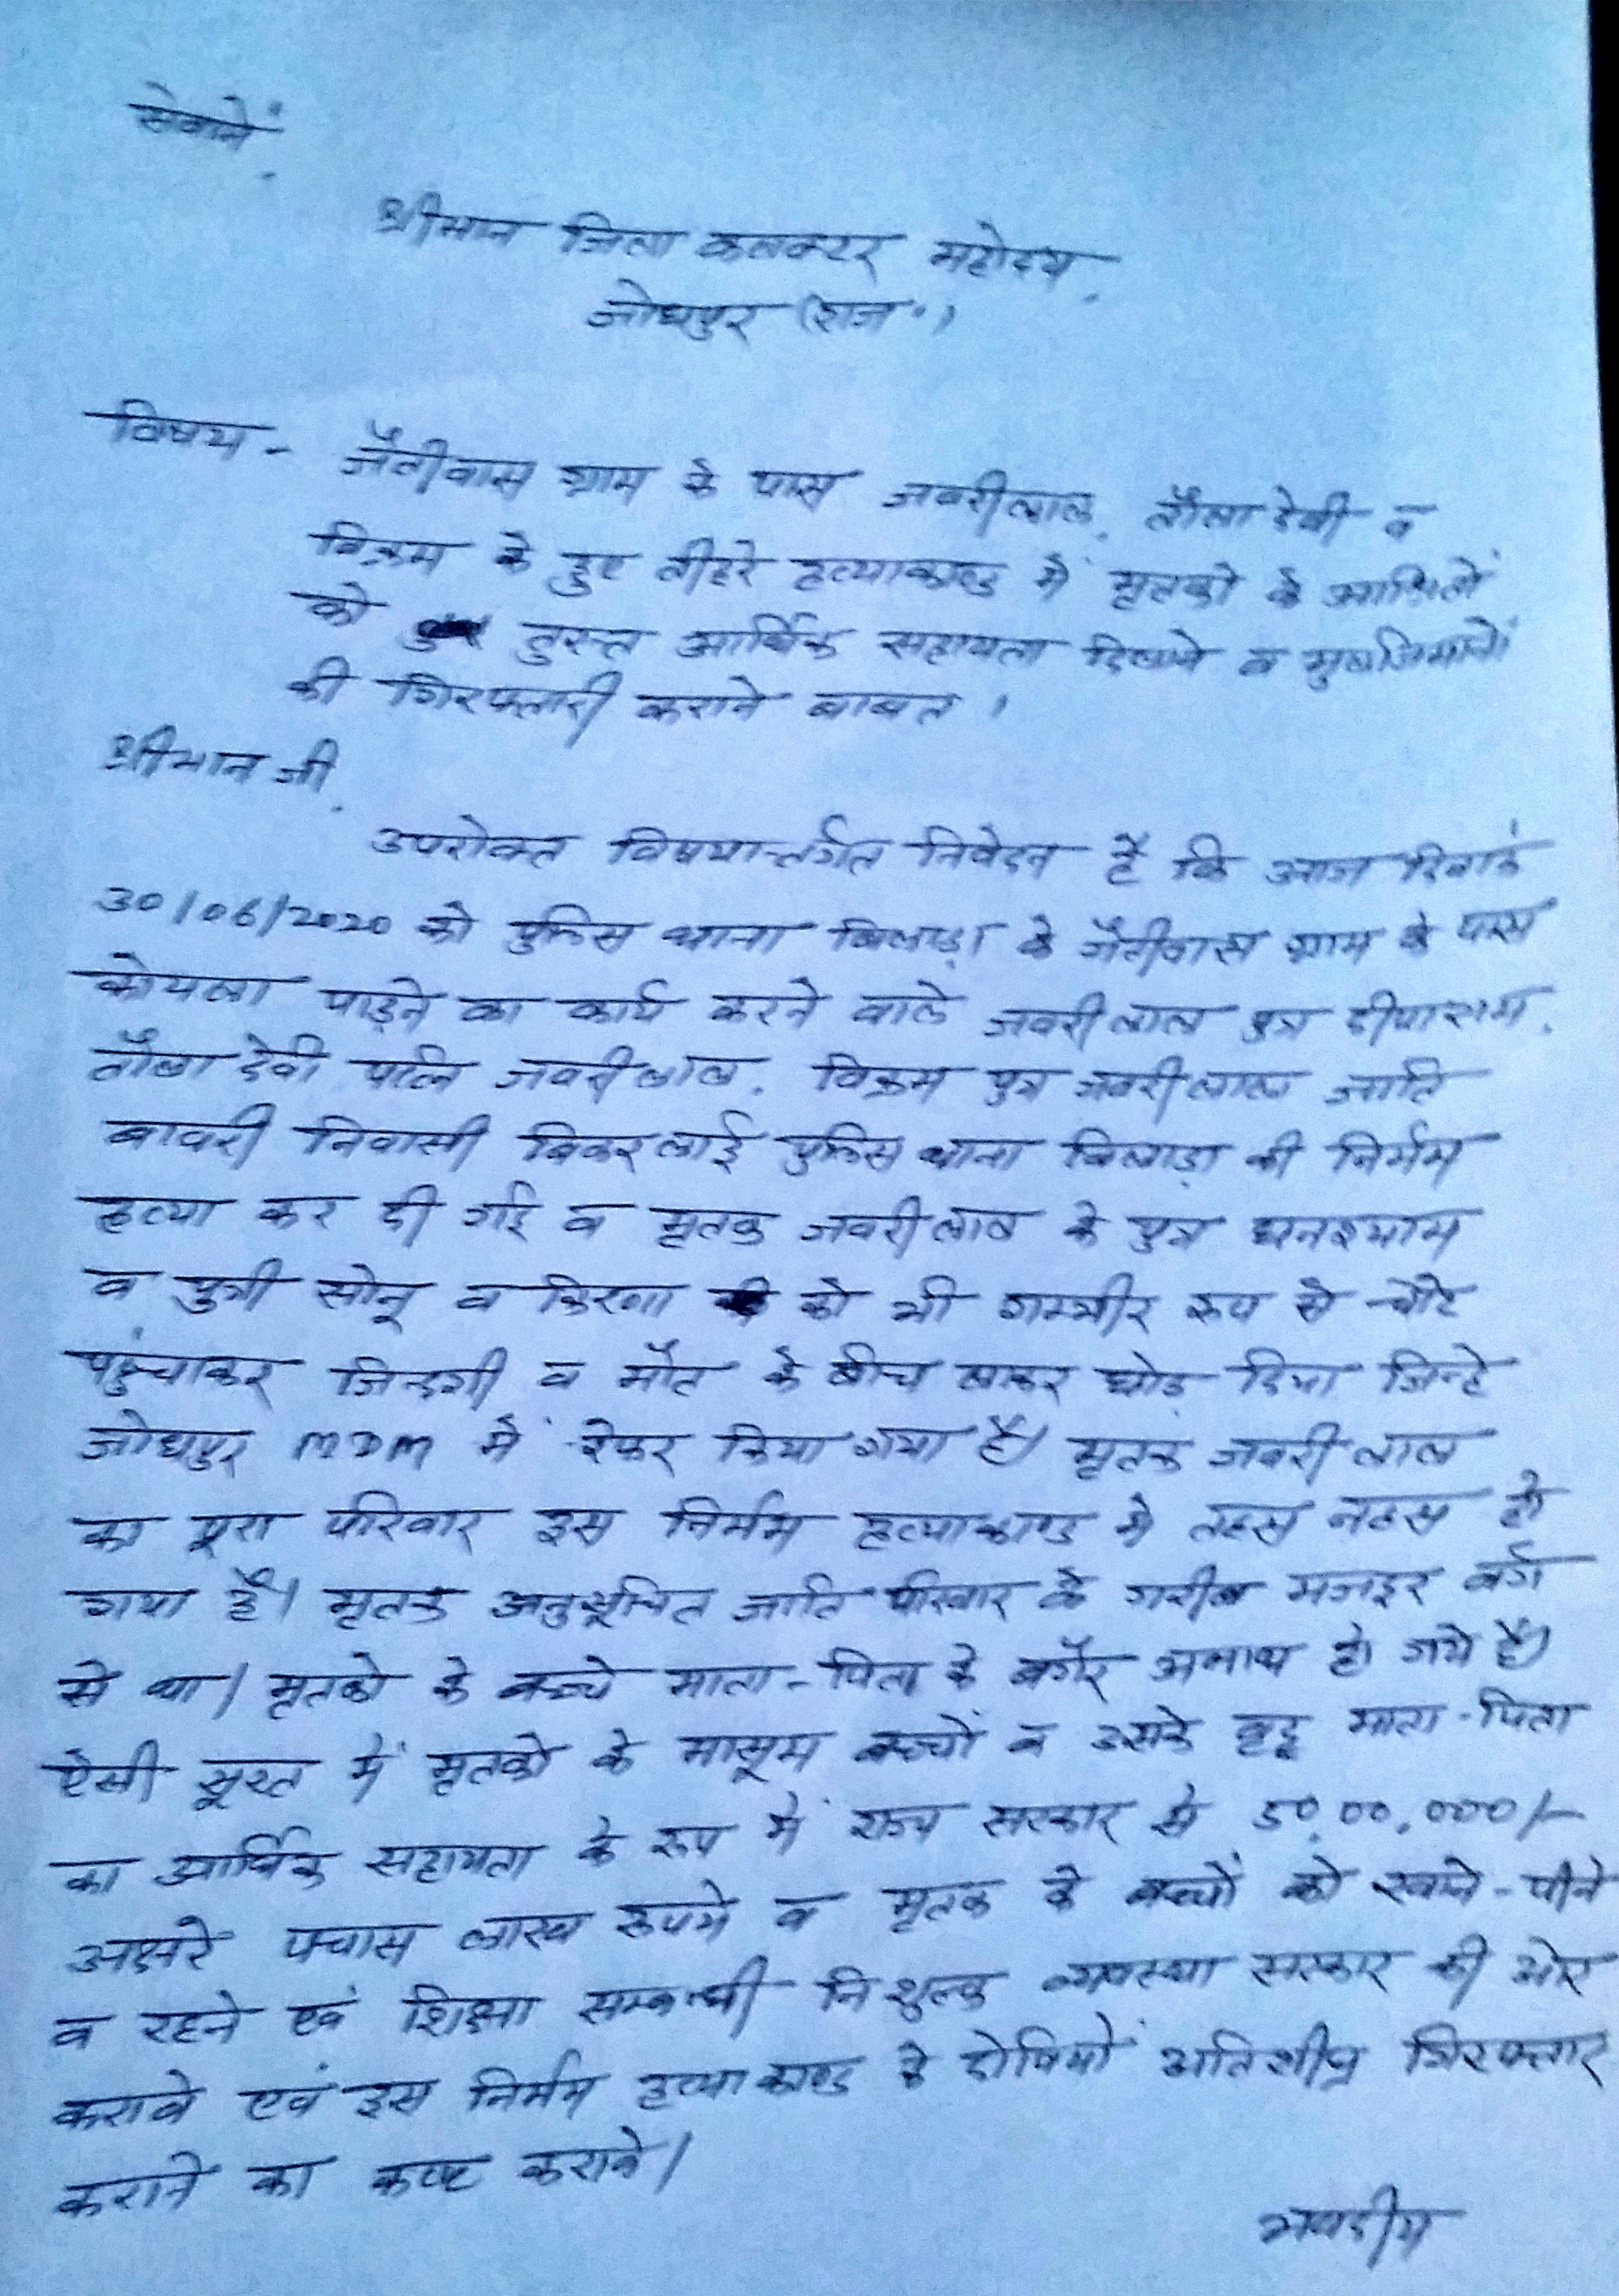 सेवामें,
श्रीमान जिला कलक्टर महोदय,
जोधपुर (राज॰)
विषय - जैतीवास ग्राम के पास जवरीलाल, तौला देवी व
विक्रम के हुए तीहरे हत्याकाण्ड में मृतको के आश्रितों
को तुरन्त आर्थिक सहायता दिलाने व मुलजिमानों
की गिरफ्तारी कराने बाबत ।
श्रीमान जी,
उपरोक्त विषयान्तर्गत निवेदन है कि आज दिनांक
30/06/2020 को पुलिस थाना बिलाड़ा के जैतीवास ग्राम के पास
कोयला पाड़ने का कार्य करने वाले जवरीलाल पुत्र दीपाराम,
तौला देवी पत्नि जवरीलाल, विक्रम पुत्र जवरीलाल जाति
बावरी निवासी बिकरलाई पुलिस थाना बिलाड़ा की निर्मम
हत्या कर दी गई व मृतक जवरीलाल के पुत्र घनश्याम
व पुत्री सोनू व किरण को भी गम्भीर रूप से चोटे
पहुंचाकर जिन्दगी व मौत के बीच लाकर छोड़ दिया जिन्हे
जोधपुर MDM में रेफर किया गया है। मृतक जवरीलाल
का पूरा परिवार इस निर्मम हत्याकाण्ड मे तहस नहस हो
गया है। मृतक अनुसूचित जाति परिवार के गरीब मजदूर वर्ग
से था। मृतको के बच्चे माता-पिता के बगैर अनाथ हो गये है।
ऐसी सूरत में मृतको के मासूम बच्चों व उसके वृद्ध माता-पिता
का आर्थिक सहायता के रूप में राज्य सरकार से 50,00,000/-
अक्षरे पचास लाख रूपये व मृतक के बच्चों को खाने-पीने
व रहने एवं शिक्षा सम्बन्धी निशुल्क व्यवस्था सरकार की ओर
करावे एवं इस निर्मम हत्याकाण्ड के दोषियों अतिशीघ्र गिरफ्तार
कराने का कष्ट करावे।
भवदीय